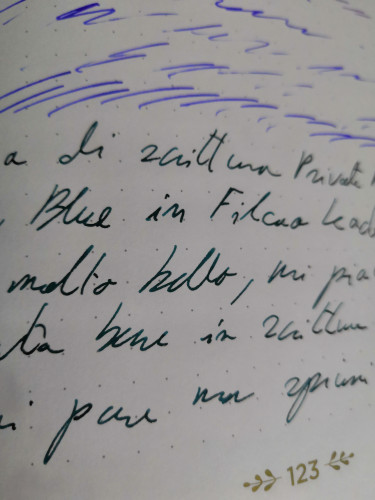 a di scrittura Private
Blue in Filcao
molto bello, mi pia
ta bene in scrittura
i pare una
123